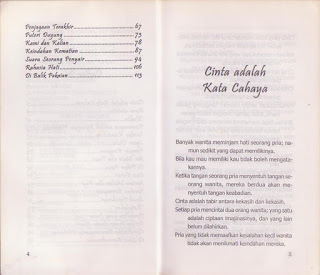 Penjagaan Terakhir 67
Puteri Dugong 73
Kami dan Kalian 78
Keindahan Kematian 87
Suara Seorang Penyair 94
Rahasia Hati 106
Di Balik Pakaian 113
4
Cinta adalah
Kata Cahaya
Banyak wanita meminjam hati seorang pria; na-
mun sedikit yang dapat memilikinya.
Bila kau mau memiliki kau tidak boleh mengata-
kannya.
Ketika tangan seorang pria menyentuh tangan se-
orang wanita, mereka berdua akan me-
nyentuh tangan keabadian.
Cinta adalah tabir antara kekasih dan kekasih.
Setiap pria mencintai dua orang wanita; yang satu
adalah ciptaan imajinasinya, dan yang lain
belum dilahirkan.
Pria yang tidak memaafkan kesalahan kecil wanita
tidak akan menikmati keindahan mereka.
5